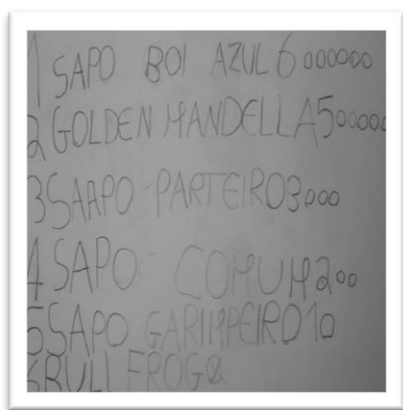 1 SAPO BOI AZUL 6000000
2 GOLDEN MANDELLA 500000
3 SAAPO PARTEIRO 3000
4 SAPO COMUM 200
5 SAPO GARIMPEIRO 10
6 BULL FROG 8